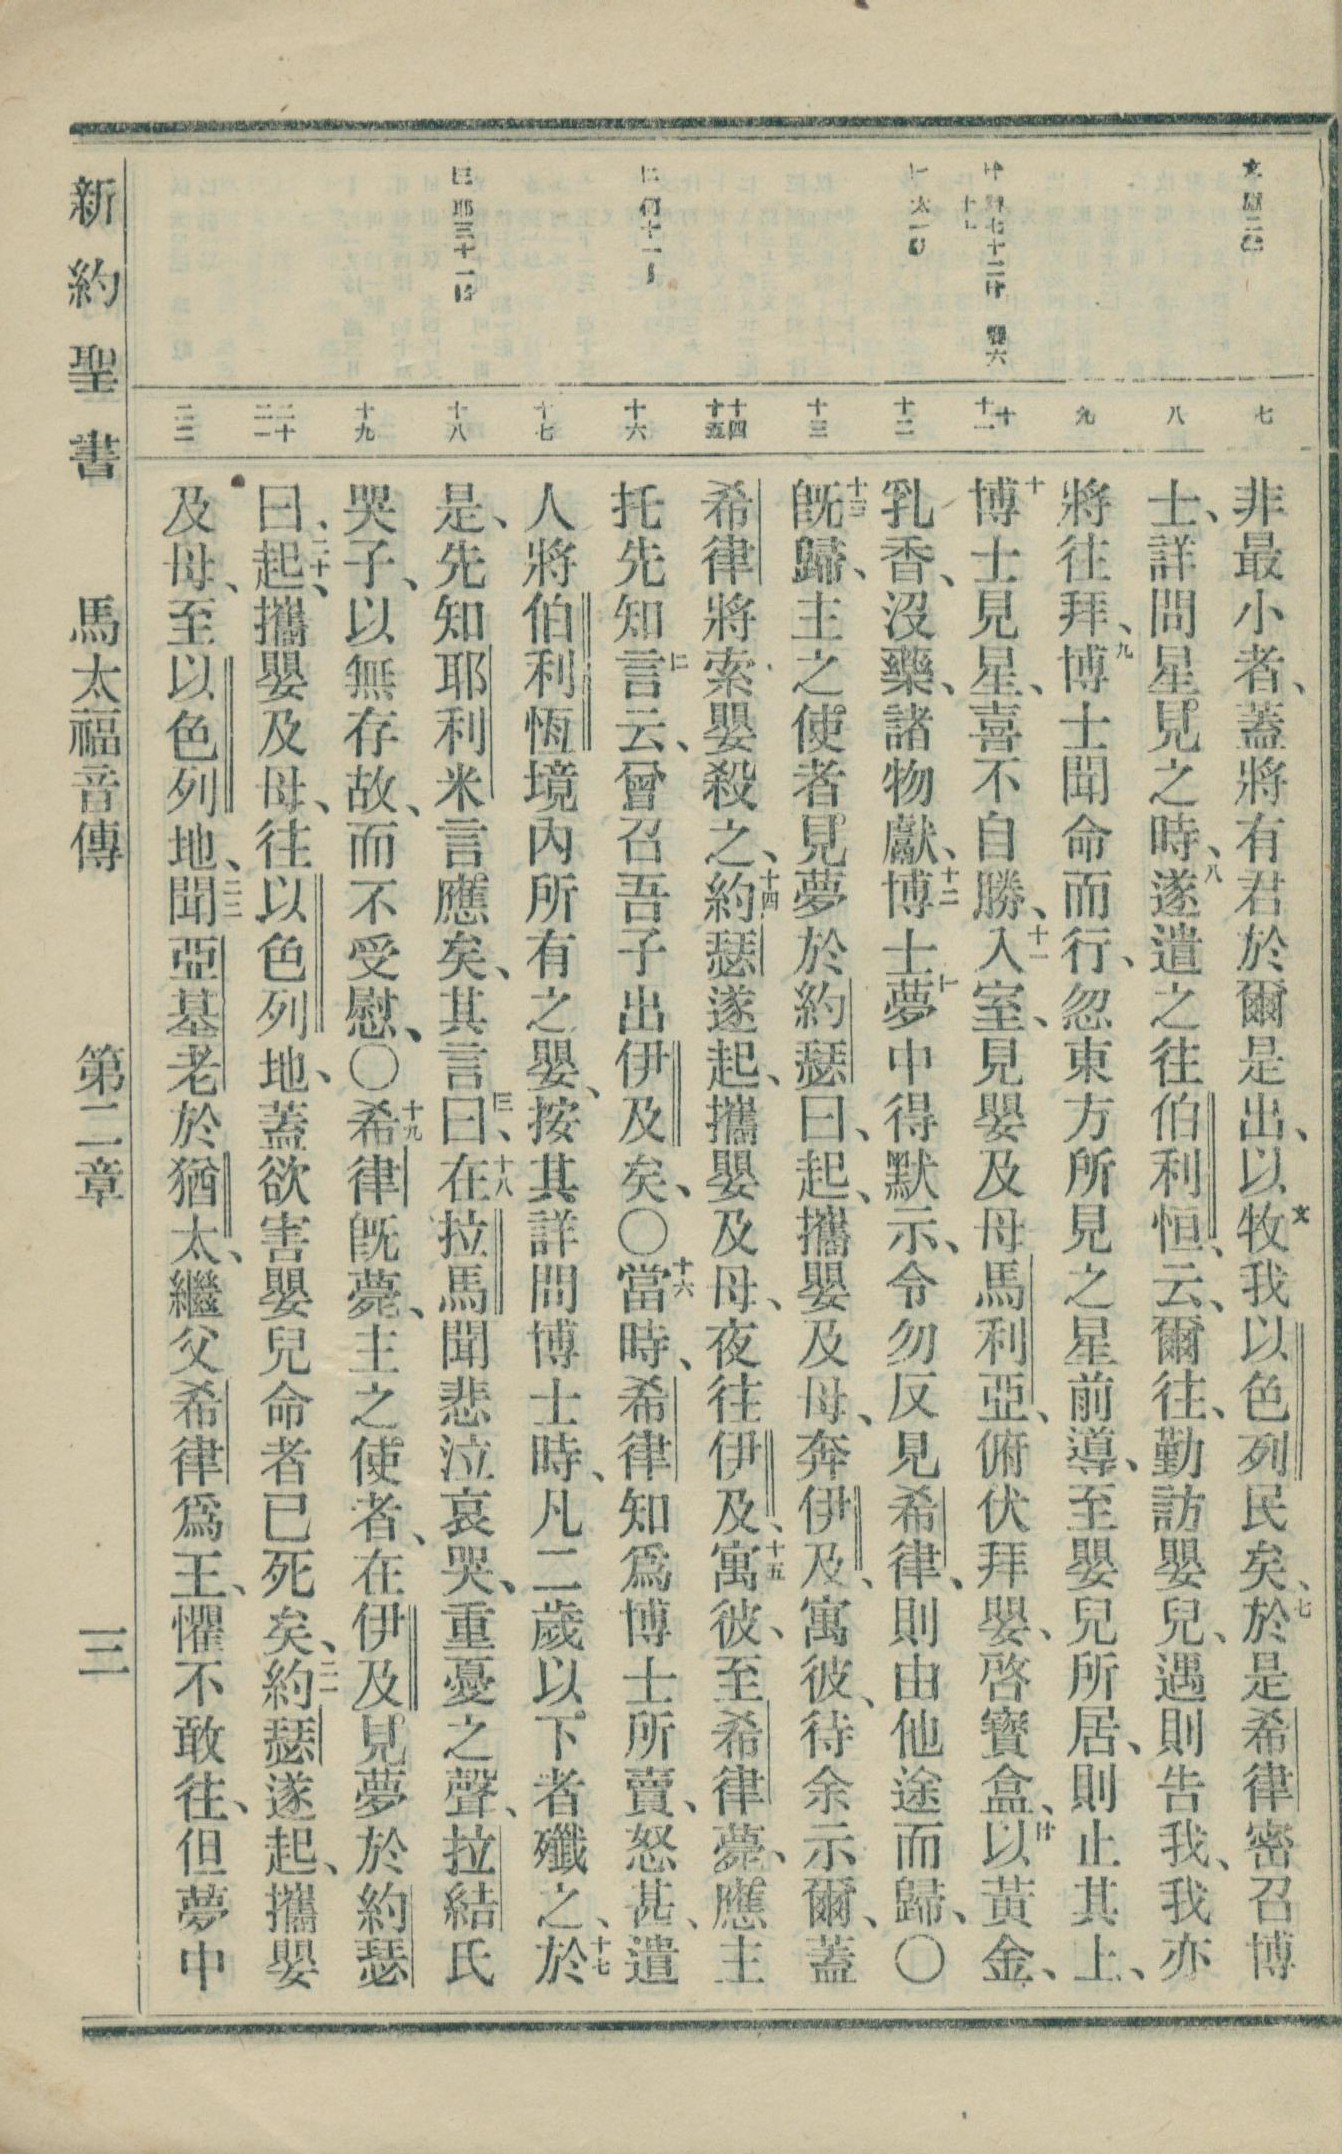 七
八
九
十
十一
十二
十三
十四
十五
十六
十七
十八
十九
二十
二一
二二
非最小者、蓋將有君於爾是出、以牧我以色列民矣、七於是希律密召博
士、詳問星見之時、八遂遣之往伯利恒、云、爾往、勤訪嬰兒、遇則告我、我亦
將往拜、九博士聞命而行、忽東方所見之星前導、至嬰兒所居、則止其上、
十博士見星、喜不自勝、十一入室、見嬰及母馬利亞、俯伏拜嬰、啓寶盒、以黃金、
乳香、沒藥、諸物獻、十二博士夢中得默示、令勿反見希律、則由他途而歸、〇
十三旣歸、主之使者見夢於約瑟曰、起、攜嬰及母、奔伊及、寓彼、待余示爾、蓋
希律將索嬰殺之、十四約瑟遂起、攜嬰及母、夜往伊及、十五寓彼、至希律薨、應主
托先知言云、曾召吾子出伊及矣、〇十六當時、希律知爲博士所賣、怒甚、遣
人將伯利恆境內所有之嬰、按其詳問博士時、凡二歲以下者殲之、十七於
是、先知耶利米言應矣、其言曰、十八在拉馬聞悲泣哀哭、重憂之聲、拉結氏
哭子、以無存故、而不受慰、〇十九希律旣薨、主之使者、在伊及見夢於約瑟
曰、二十起、攜嬰及母、往以色列地、蓋欲害嬰兒命者已死矣、二一約瑟遂起、攜嬰
及母、至以色列地、二二聞亞基老於猶太、繼父希律爲王、懼不敢往、但夢中
新約聖書 馬太福音傳 第二章 三